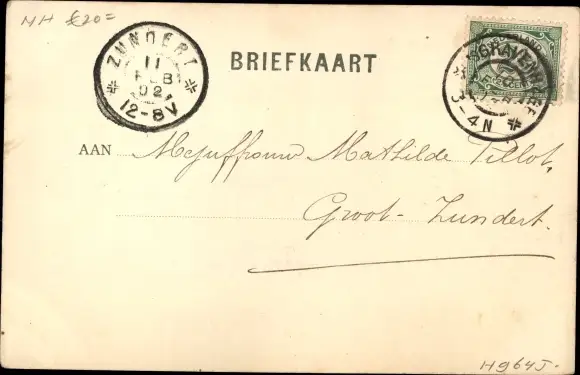 MH €20=
ZUNDERT
11
FEB
02
12-8V
BRIEFKAART
NEDERLAND
'S-GRAVENHAGE
3-4N
AAN Mejuffrouw Mathilde Tillot,
Groot-Zundert.
H964J.